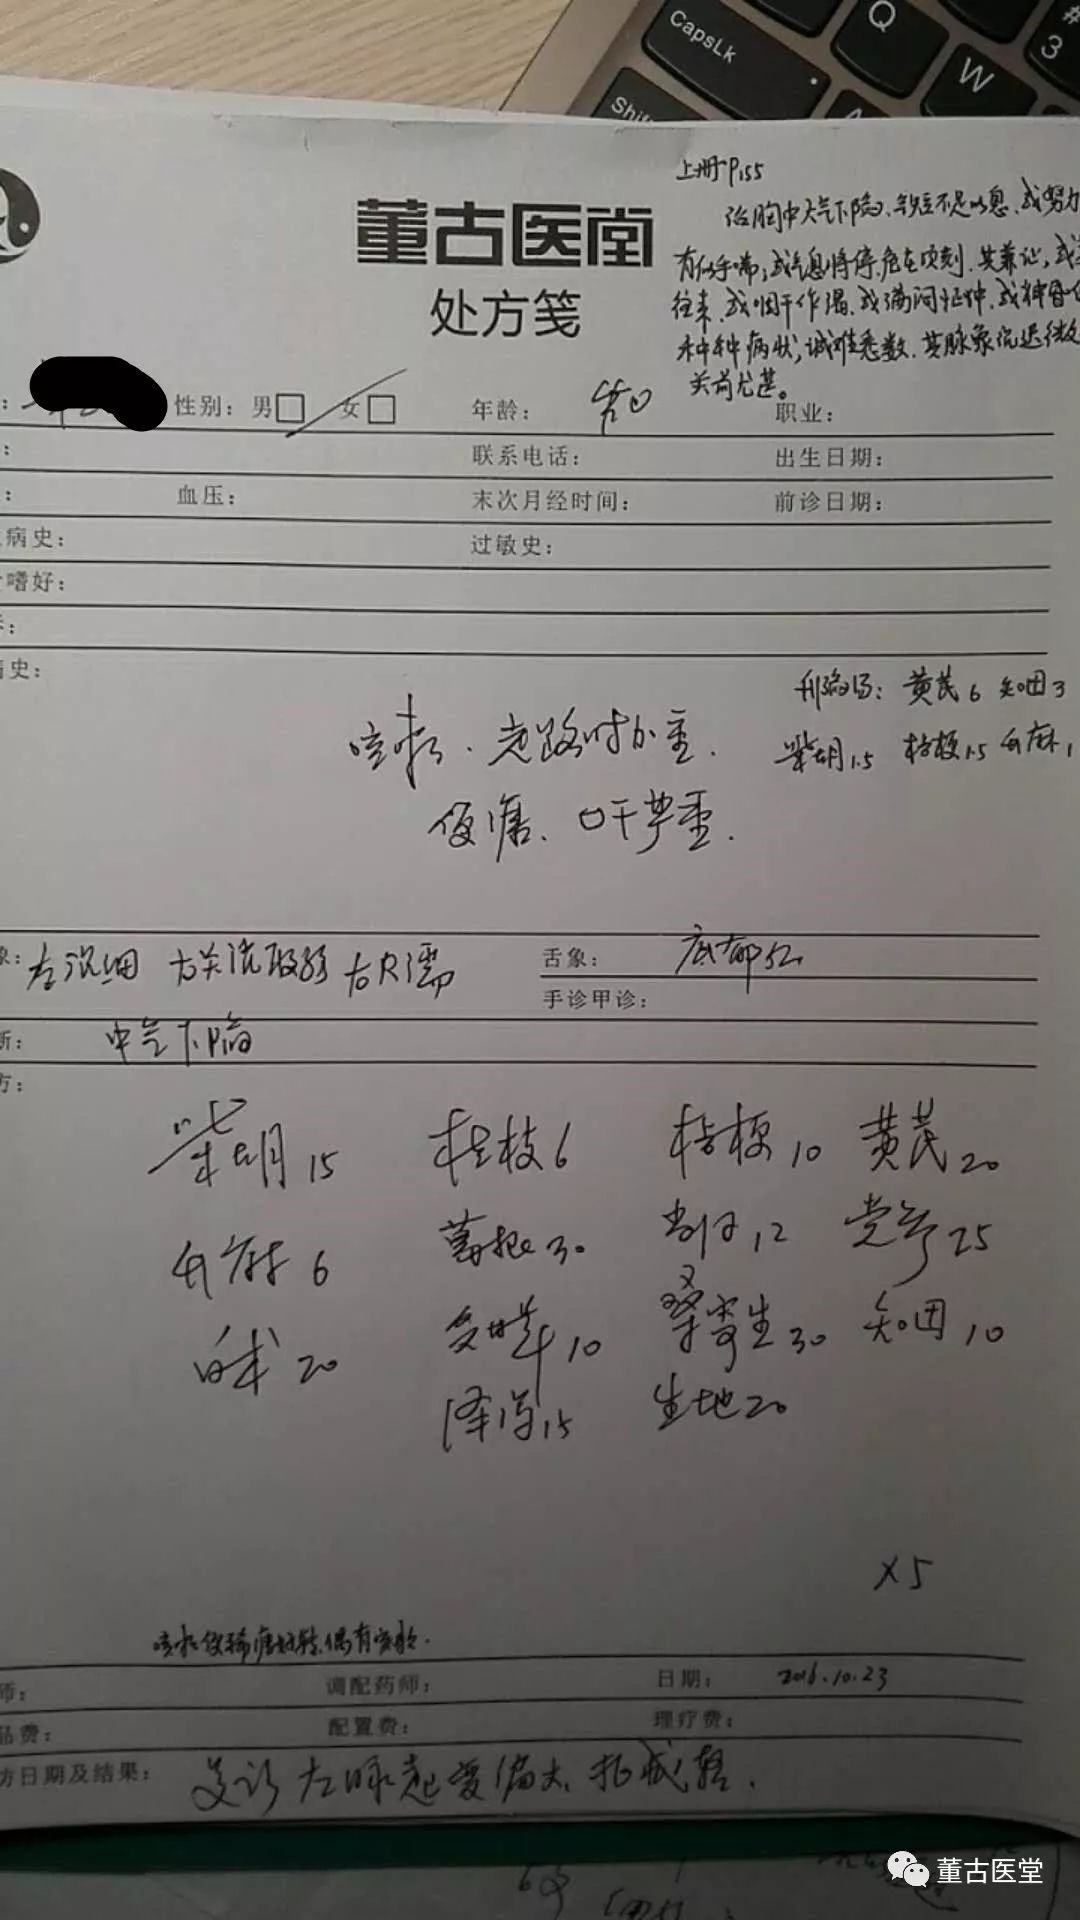 CapsLk
Q
W
#
3
Shif
上册P155
治胸中大气下陷、气短不足以息、或努力
有似乎喘；或气息将停、危在顷刻。其兼证，或
往来、或咽干作渴、或满闷怔忡、或神昏
种种病状，诚难悉数。其脉象沉迟微
关前尤甚。
董古医堂
处方笺
性别：男□ 女□ 年龄： 职业：
联系电话： 出生日期：
血压： 末次月经时间： 前诊日期：
病史： 过敏史：
嗜好：
史：
升陷汤：黄芪6 知母3
柴胡1.5 桔梗1.5 升麻1
咳嗽．走路时加重．
便溏．口干严重．
左沉细 右关沉取弱 右尺濡 舌象：底部红
手诊甲诊：
中气下陷
方：
柴胡15 桂枝6 桔梗10 黄芪20
升麻6 葛根30 当归12 党参25
白术20 10 桑寄生30 知母10
泽泻15 生地20
×5
咳嗽便稀溏好转，偶有咳嗽．
师： 调配药师： 日期：2016.10.23
品费： 配置费： 理疗费：
方日期及结果：复诊 左脉 偏大 减轻．
董古医堂